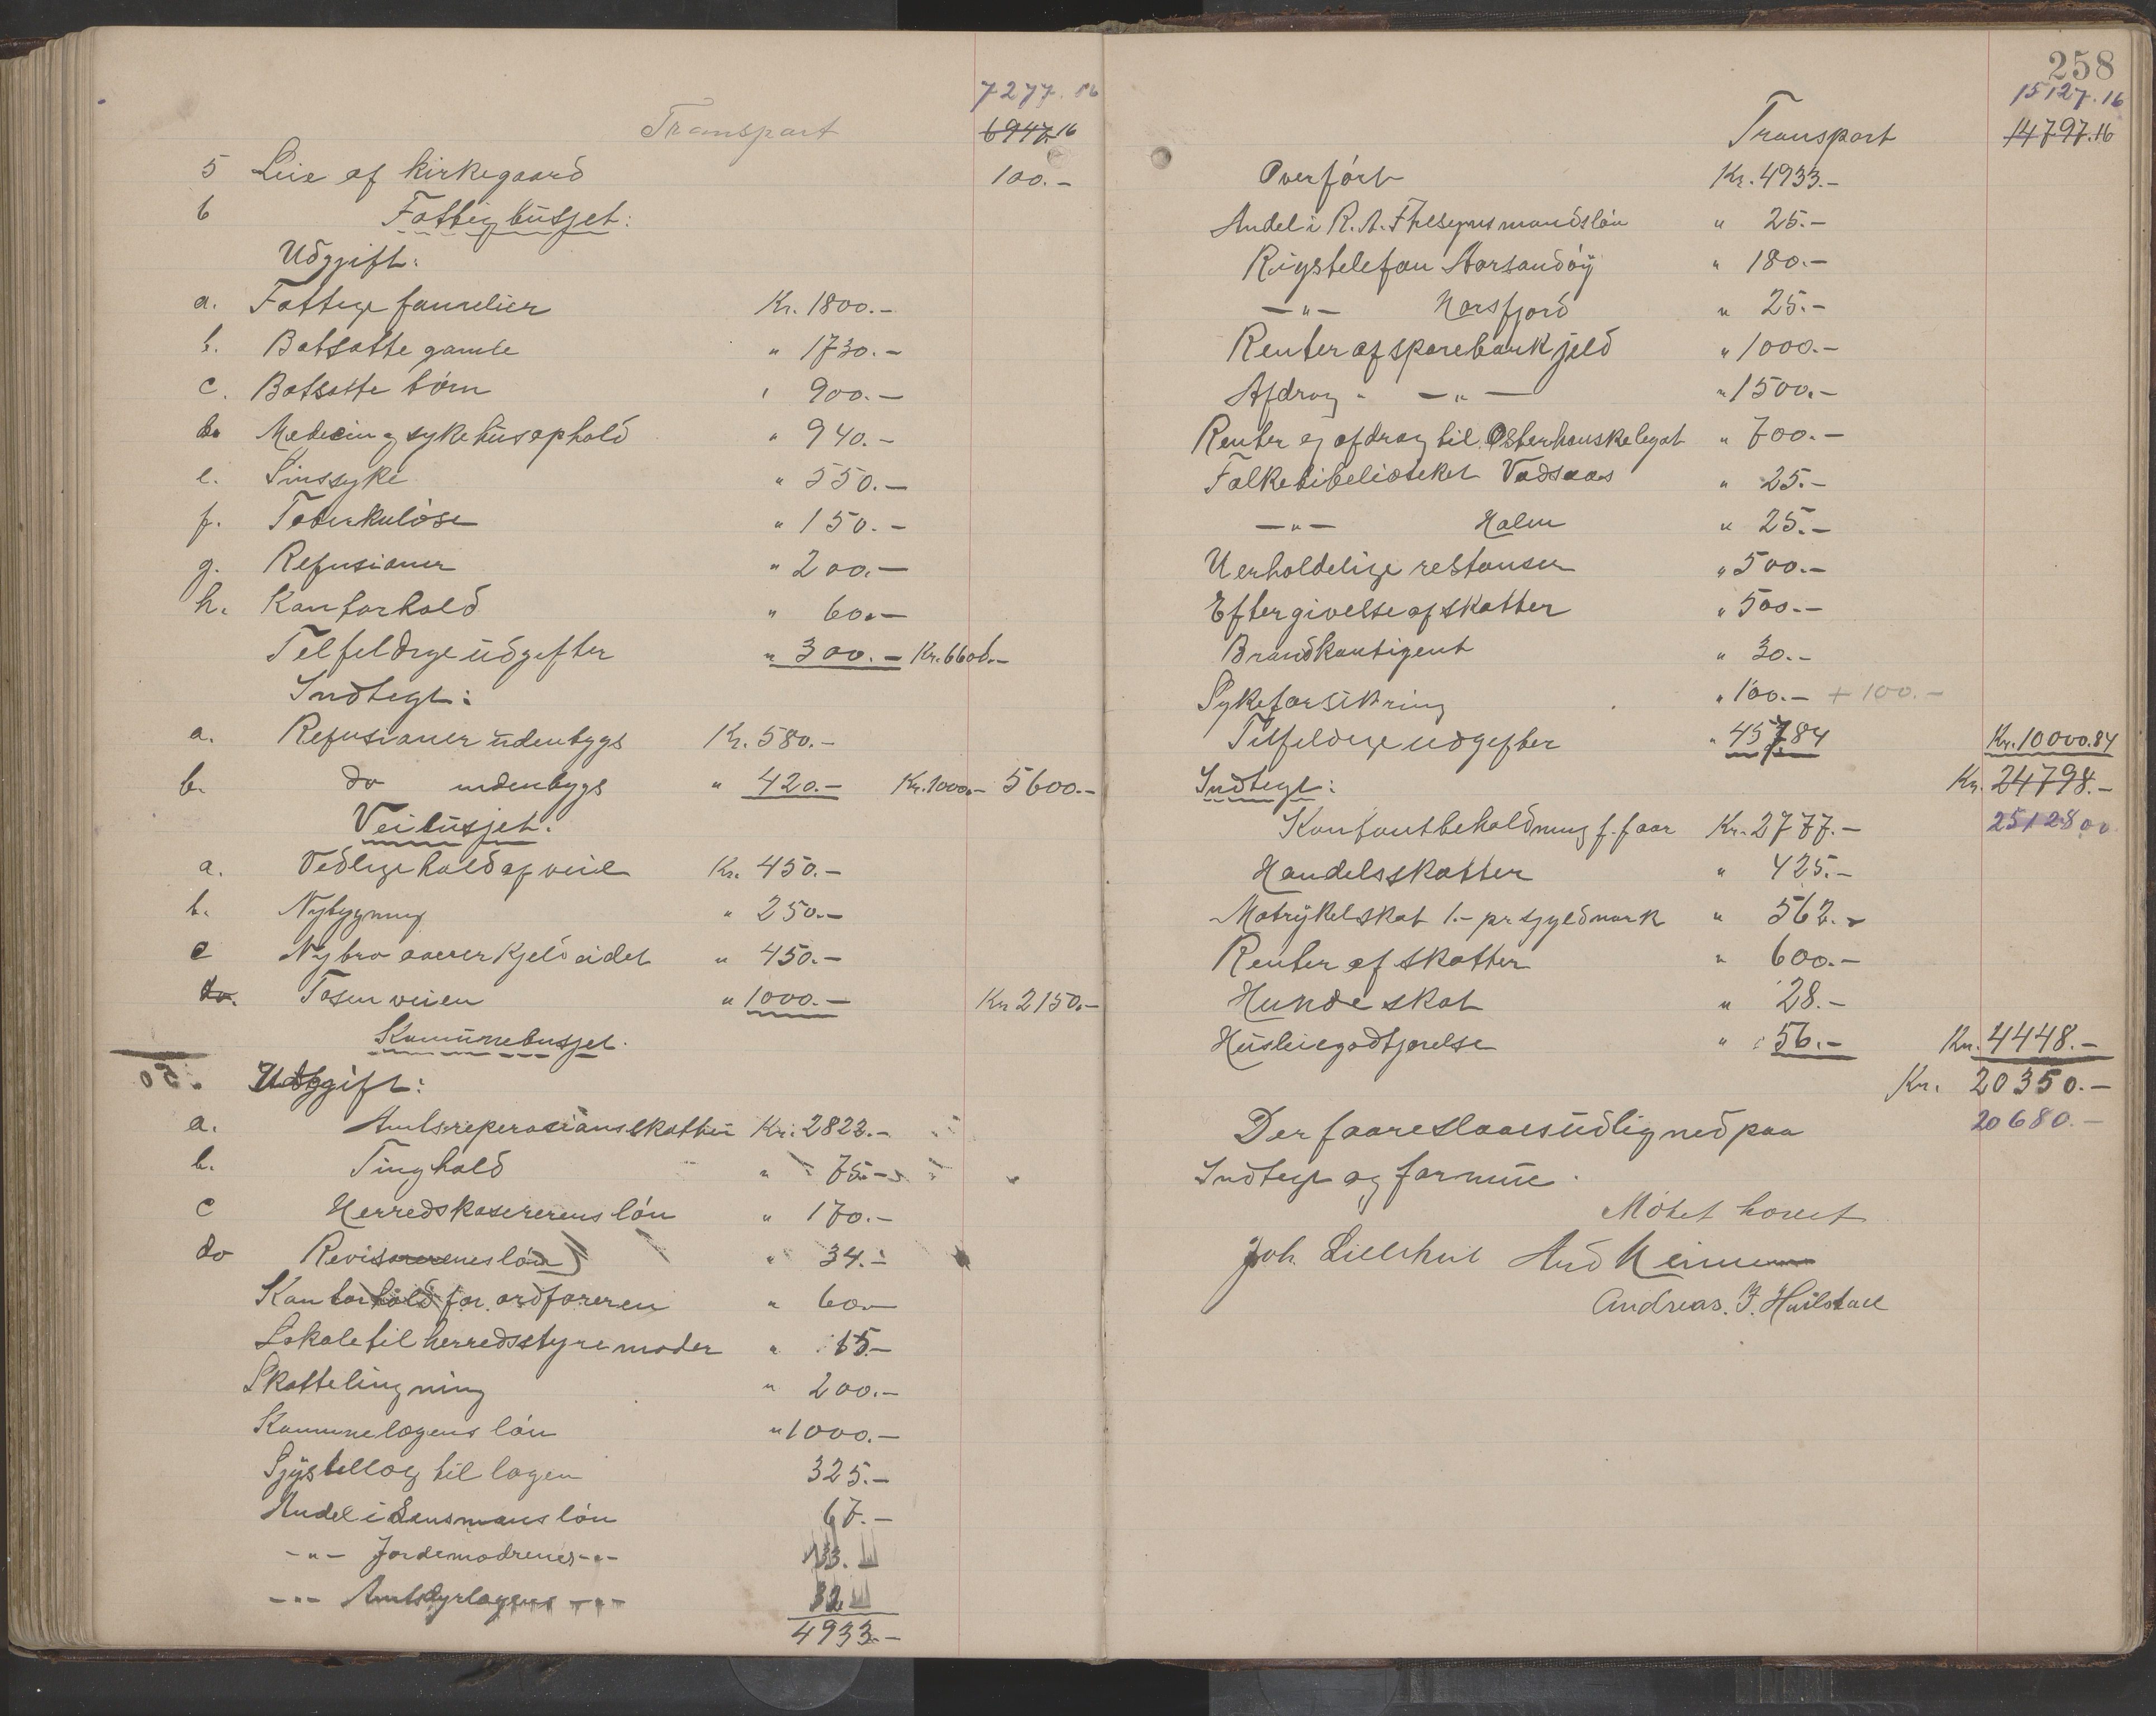 7277.86
Transport 6947.16
5 Leie af kirkegaard 100.-
6 Fattigbüdsjet:
Udgift:
a. Fattige familier Kr. 1800.-
b. Botsatte gamle " 1730.-
c. Botsatte børn " 900.-
d. Medecin og sykehüsophold " 940.-
e. Sinssyke " 550.-
f. Toberkuløse " 150.-
g. Refusioner " 200.-
h. Kontorhold " 60.-
Tilfeldige üdgifter " 300.- Kr. 6600.-
Indtegt:
a. Refusioner üdenbygs Kr. 580.-
b. do indenbygs " 420.- Kr. 1000.- 5600.-
Veibüsjet:
a. Vedligehold af veie Kr. 450.-
b. Nybygning " 250.-
c Ny bro over Kjeldeidet " 450.-
do. Tosenveien " 1000.- Kr 2150.-
Komünebusjet.
Udggift:
a. Amtsreperasionsskatten Kr. 2823.-
b. Tinghold " 75.-
c Herredskasererens løn " 170.-
do Revisorenes løn " 34.-
Kontorhold for ordføreren " 60.-
Lokale til herredsstyremøder " 15.-
Skatteligning " 200.-
Kommunelægens løn " 1000.-
Skystillæg til lægen 325.-
Andel i Lensmans løn 67.-
-"- Jordemodrenes -"- 133.
-"- Amtsdyrlægens -"- 32
4933.-
258
15127.16
Transport 14797.16
Overført Kr. 4933.-
Andel i R. A. løn " 25.-
Rigstelefon Storsandøÿ " 180.-
-"- Horsfjord " 25.-
Renter af sparebankjeld " 1000.-
Afdrag " -"- " 1500.-
Renter og afdrag til Osterhouskelegat " 700.-
Folkebibelioteket Vadsaas " 25.-
-"- Holm " 25.-
Uerholdelige restanser " 500.-
Eftergivelse af skatter " 500.-
Brandkontigent " 30.-
Sykeforsikring " 100.- + 100.-
Tilfeldige udgifter " 457.84 Kr. 10000.84
Kr. 24798.-
Indtegt:
Kontantbeholdning f. f. aar Kr. 2777.- 25128 00
Handelsskatter " 425.-
Matrÿkelskat 1.- pr skyldmark " 562.-
Renter af skatter " 600.-
Hundeskat " 28.-
Hüsleiegodtjørelse " 56.- Kr. 4448.-
Kr. 20350.-
Der foreslaaes üdlignet paa 20680.-
Indtegt og formüe.
Møtet hævet
Joh. Lillehul And
Andreas. J.